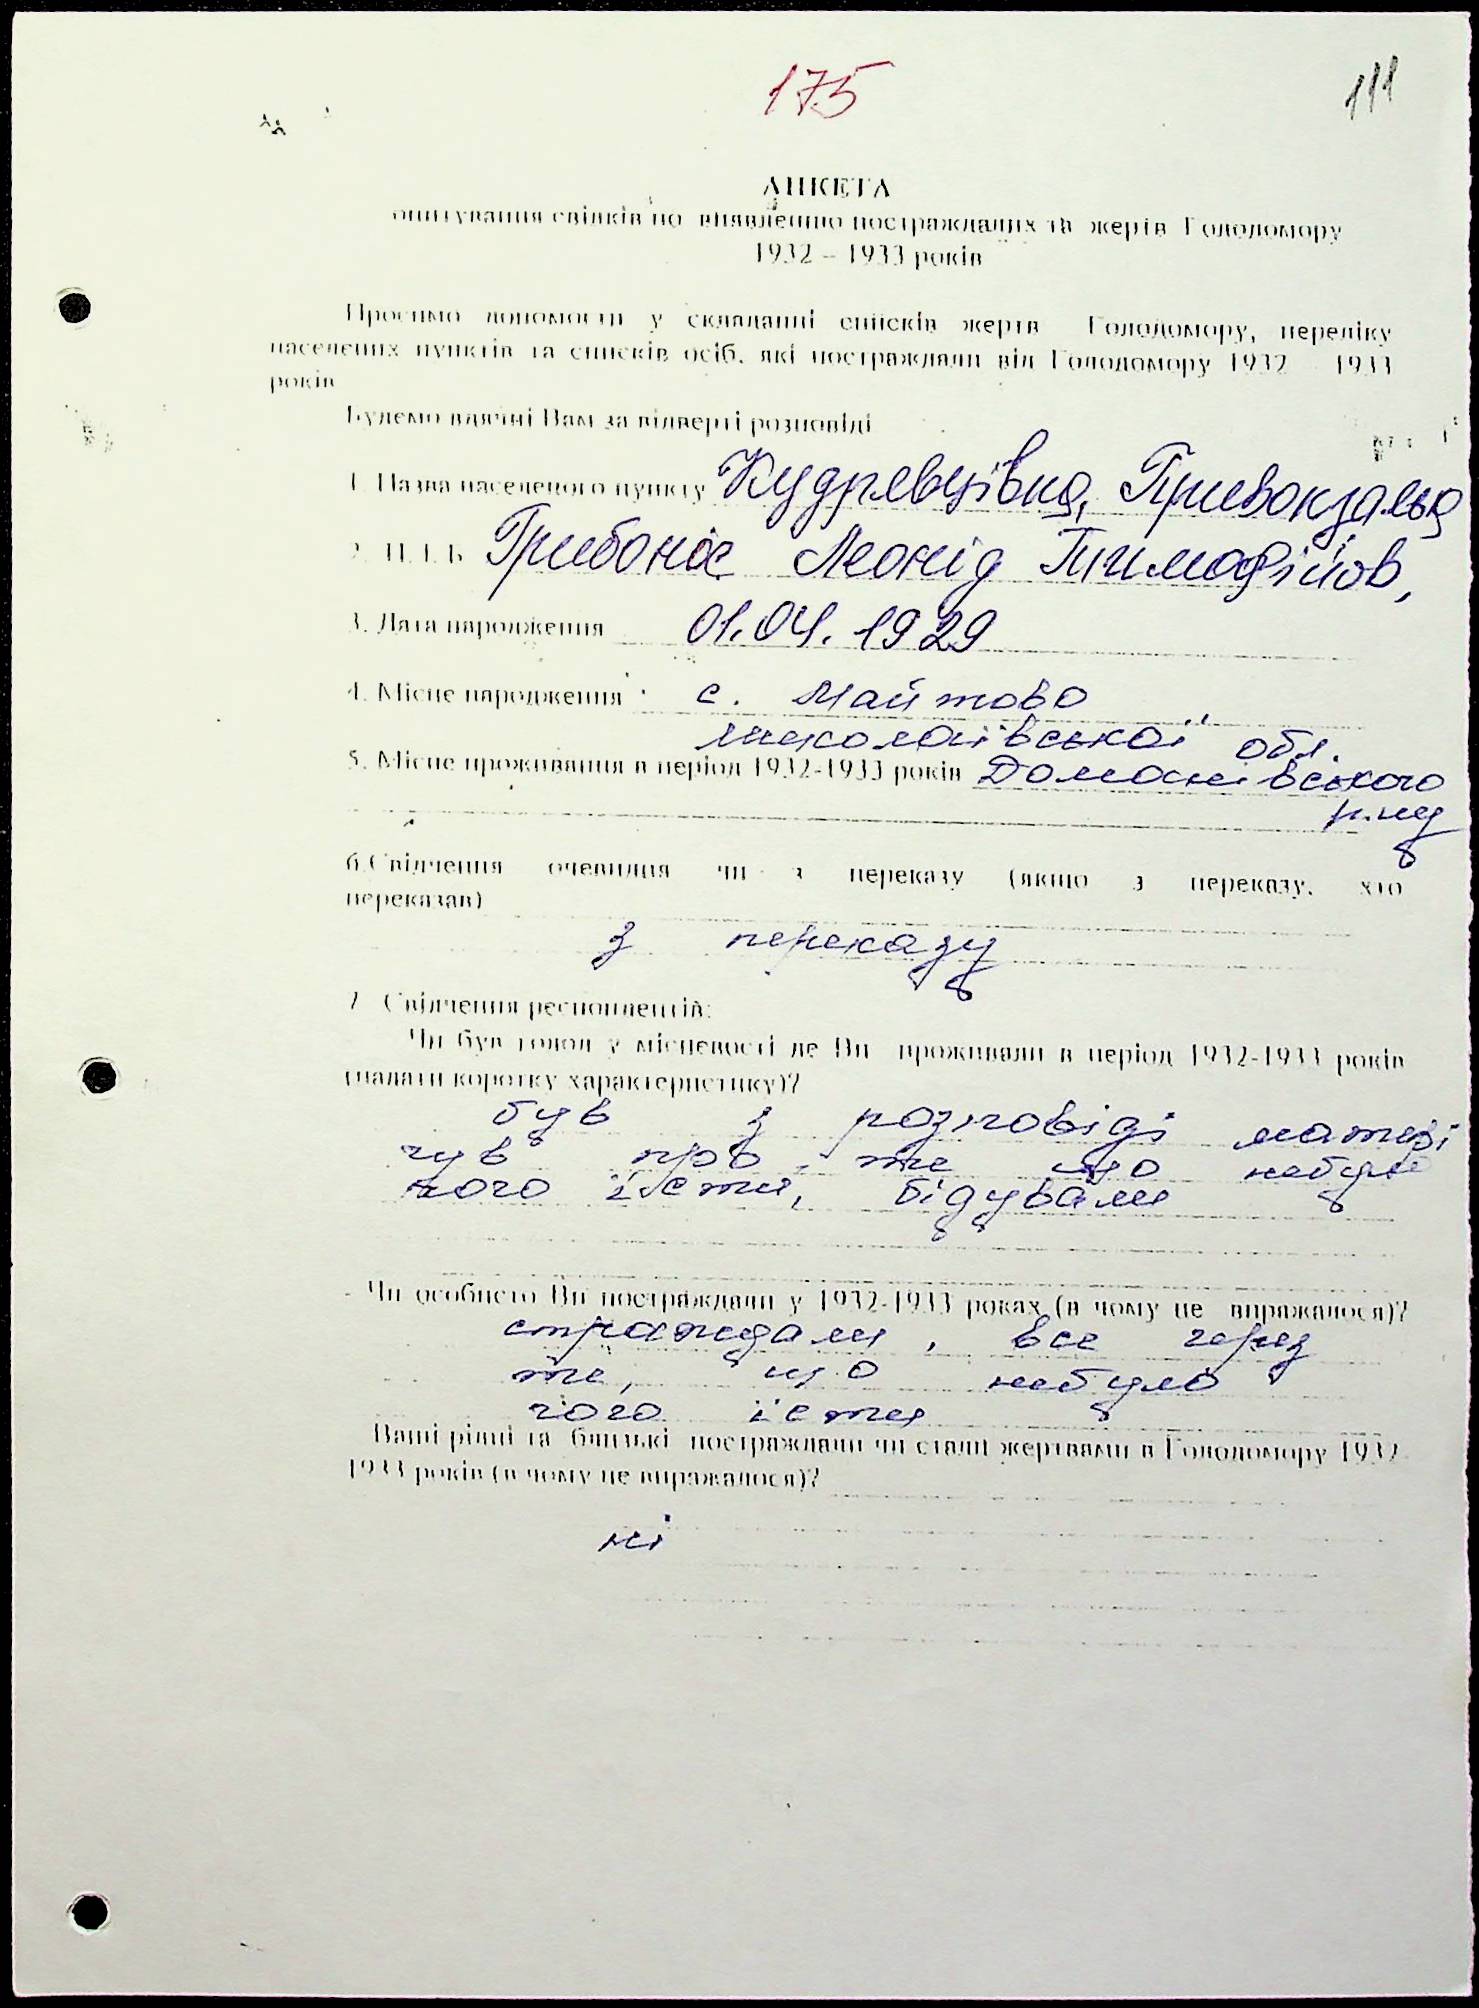 175
111
АНКЕТА
опитування свідків по виявленню постраждалих та жертв Голодомору
1932 – 1933 років
Просимо допомогти у складанні списків жертв Голодомору, переліку
населених пунктів та списків осіб, які постраждали від Голодомору 1932 1933
років
Будемо вдячні Вам за відверті розповіді
1. Назва населеного пункту Кудрявцівка, Привокзальна
2. П.І.Б. Грибоніс Леонід Тимофійов,
3. Дата народження 01.04.1929
4. Місце народження с. Майтово
миколаївської обл.
5. Місце проживання в період 1932-1933 років Доманівського
р.ну
6. Свідчення очевидця чи з переказу (якщо з переказу, хто
переказав)
з переказу
7 Свідчення респондентів:
Чи був голод у місцевості де Ви проживали в період 1932-1933 років
(надати коротку характеристику)?
був з розповіді матері
чув про те що небуло
чого їсти, бідували
- Чи особисто Ви постраждали у 1932-1933 роках (в чому це виражалося)?
страждали, все через
те, що небуло
чого їсти
Ваші рідні та близькі постраждали чи стали жертвами в Голодомору 1932
1933 років (в чому це виражалося)?
ні